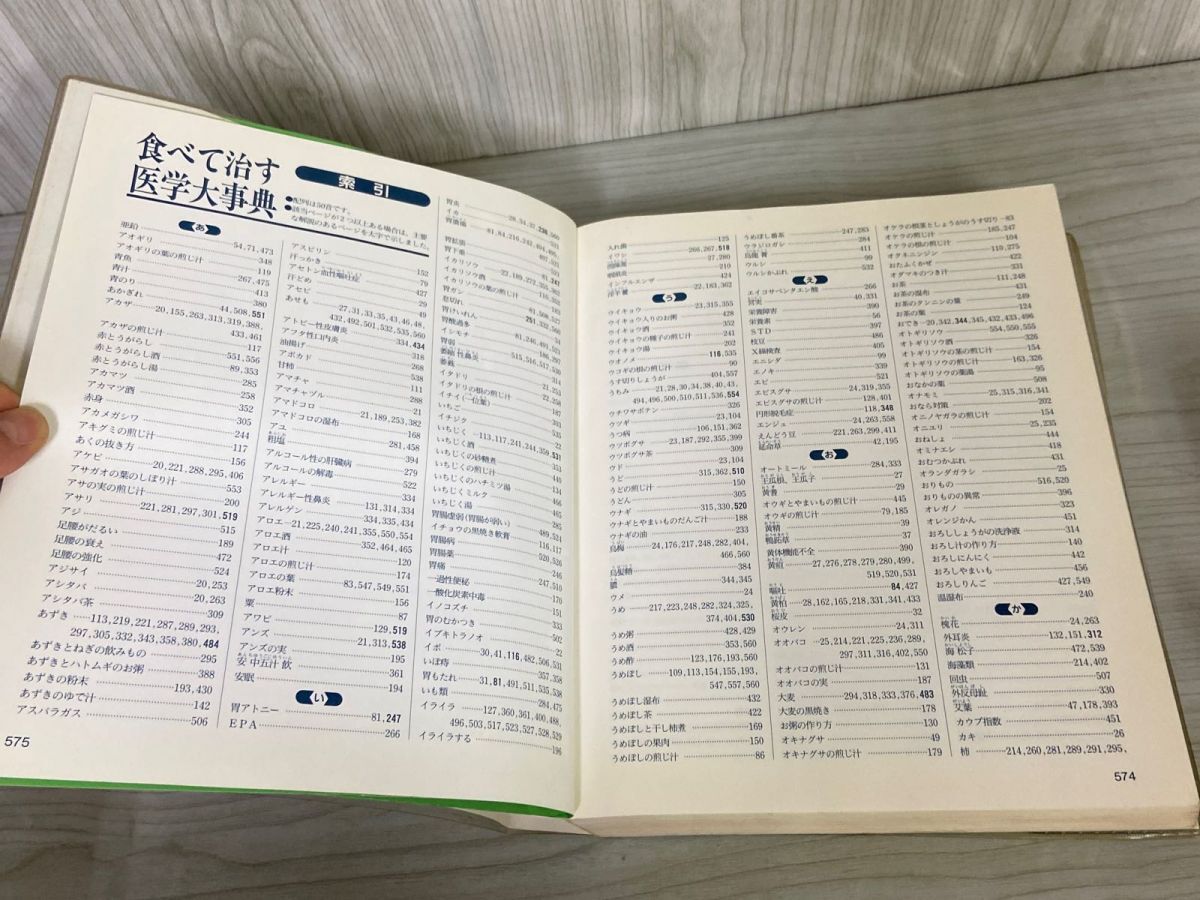 食べて治す
医学大事典
索引
●配列は50音です。
●該当ページが2つ以上ある場合は、主要
な解説のあるページを太字で示しました。
あ
亜鉛……54,71,473
アオギリ……348
アオギリの葉の煎じ汁……119
青魚……267,475
青汁……413
青のり……380
あかぎれ……44,508,551
アカザ……20,155,263,313,319,388,
433,461
アカザの煎じ汁……117
赤とうがらし……551,556
赤とうがらし酒……89,353
赤とうがらし湯……285
アカマツ……258
アカマツ酒……352
赤身……305
アカメガシワ……244
アキグミの煎じ汁……117
あくの抜き方……156
アケビ……20,221,288,295,406
アサガオの葉のしぼり汁……553
アサの実の煎じ汁……200
アサリ……221,281,297,301,519
アジ……515
足腰がだるい……189
足腰の衰え……472
足腰の強化……524
アジサイ……20,253
アシタバ……20,263
アシタバ茶……309
あずき……113,219,221,287,289,293,
297,305,332,343,358,380,484
あずきとねぎの飲みもの……295
あずきとハトムギのお粥……388
あずきの粉末……193,430
あずきのゆで汁……142
アスパラガス……506
アスピリン……152
汗っかき……79
アセトン血性嘔吐症……427
汗どめ……29
アセビ……49
あせも……27,31,33,35,43,46,48,
432,492,501,532,535,560
アトピー性皮膚炎……334,434
アフタ性口内炎……318
油揚げ……268
アボカド……538
甘柿……111
アマチャ……288
アマチャヅル……21
アマドコロ……21,189,253,382
アマドコロの湿布……168
アユ……281,458
粗塩……394
アルコール性の肝臓病……279
アルコールの解毒……522
アレルギー……334
アレルギー性鼻炎……131,314,334
アレルゲン……334,335,434
アロエ……21,225,240,241,355,550,554
アロエ酒……352,464,465
アロエ汁……120
アロエの煎じ汁……174
アロエの葉……83,547,549,551
アロエ粉末……156
粟……87
アワビ……129,519
アンズ……21,313,538
アンズの実……195
安中五汁飲……361
安眠……194
い
胃アトニー……81,247
EPA……266
胃炎……28,34,37,238,560
イカ
胃潰瘍……81,84,216,242,404,
胃拡張
胃下垂
イカリソウ……22,189,272,357
イカリソウ酒
イカリソウの煎じ汁
胃ガン
息切れ
胃けいれん
胃酸過多
イシモチ
胃弱
萎縮性鼻炎
イタドリ
イタドリの根の煎じ汁
イチイ（一位葉）
いちご
イチジク
いちじく……113,117,241,244,359,531
いちじく酒
いちじくの砂糖煮
いちじくの煎じ汁
いちじくのハチミツ湯
いちじくミルク
いちじく湯
胃腸虚弱（胃腸が弱い）
イチョウの黒焼き軟膏……489,524
胃腸病……116,117
胃腸薬……520,526
胃痛……246
一過性便秘……247,510
一酸化炭素中毒……170
イノコズチ……151
胃のむかつき……333
イブキトラノオ……502
イボ……30,41,116,482,506,531
いぼ痔……357
胃もたれ……31,81,491,511,535,538
いも類……284,475
イライラ……127,360,361,400,488,
496,503,517,523,527,528,529
イライラする……196
575
入れ歯……125
イワシ……266,267,518
陰陽湯……37,280
咽頭炎……219
インフルエンザ……424
淫羊藿……22,183,362
う
ウイキョウ……23,315,355
ウイキョウ入りのお粥……428
ウイキョウ酒……352
ウイキョウの種子の煎じ汁……241
ウイキョウ湯……262
ウオノメ……116,535
ウコギの根の煎じ汁……90
うす切りしょうが……404,557
うちみ……21,28,30,34,38,40,43,
494,496,500,510,511,536,554
ウチワサボテン……326
ウツギ……23,104
うつ病……106,151,362
ウツボグサ……23,187,292,355,399
ウツボグサ茶……309
ウド……23,104
うど……315,362,510
うどの煎じ汁……150
うどん……305
ウナギ……315,330,520
ウナギとやまいものだんご汁……188
ウナギの油……233
烏梅……24,176,217,248,282,404,
466,560
烏髪醋……384
膿……344,345
ウメ……24
うめ……217,223,248,282,324,325,
374,404,530
うめ粥……428,429
うめ酒……353,560
うめ酢……123,176,193,560
うめぼし……109,113,154,155,193,
547,557,560
うめぼし湿布……432
うめぼし茶……422
うめぼしと干し柿煮……169
うめぼしの果肉……150
うめぼしの煎じ汁……86
うめぼし番茶……247,283
ウラジロガシ……284
烏龍膏……411
ウルシ……99
ウルシかぶれ……532
え
エイコサペンタエン酸……266
営実……40,331
栄養障害……390
栄養素……56
STD……397
枝豆……486
X線検査……405
エニシダ……99
エノキ……339
エビ……521
エビスグサ……24,319,355
エビスグサの煎じ汁……128,401
円形脱毛症……118,348
エンジュ……24,263,558
えんどう豆……221,263,299,411
延命草……42,195
お
オートミール……284,333
王瓜根、王瓜子……27
黄耆……29
オウギとやまいもの煎じ汁……445
オウギの煎じ汁……79,185
黄精……39
鴨跖草……37
黄体機能不全……390
黄疸……27,276,278,279,280,499,
519,520,531
嘔吐……84,427
黄柏……28,162,165,218,331,341,433
桜皮……32
オウレン……24,311
オオバコ……25,214,221,225,236,289,
297,311,316,402,550
オオバコの煎じ汁……131
オオバコの実……187
大麦……294,318,333,376,483
大麦の黒焼き……178
お粥の作り方……130
オキナグサ……49
オキナグサの煎じ汁……179
オケラの根茎としょうがのうす切り……83
オケラの煎じ汁……185,247
オケラの根の煎じ汁……104
オタネニンジン……110,275
おたふくかぜ……422
オダマキのつき汁……331
お茶……111,248
お茶の湿布……431
お茶のタンニンの葉……249
お茶の葉……124
おでき……20,342,344,345,432,433,496
オトギリソウ……554,550,555
オトギリソウ酒……326
オトギリソウの茎の煎じ汁……154
オトギリソウの煎じ汁……163,326
オトギリソウの薬湯……95
おなかの薬……508
オナモミ……25,315,316,341
おなら対策……202
オニノヤガラの煎じ汁……154
オニユリ……25,235
おねしょ……444
オミナエシ……418
おむつかぶれ……431
オランダガラシ……25
おりもの……516,520
おりものの異常……396
オレガノ……323
オレンジかん……451
おろししょうがの洗浄液……314
おろし汁の作り方……140
おろしにんにく……442
おろしやまいも……456
おろしりんご……427,549
温湿布……240
か
槐花……24,263
外耳炎……132,151,312
海松子……472,539
海藻類……214,402
回虫……507
外反母趾……330
艾葉……47,178,393
カウプ指数……451
カキ……26
柿……214,260,281,289,291,295,
574